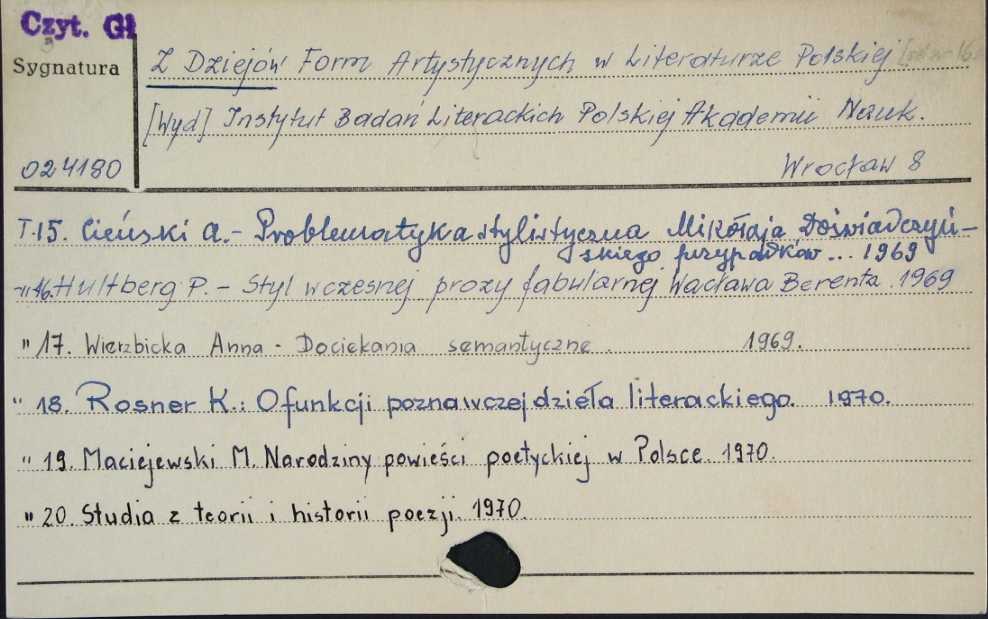 Czyt. Gł
Sygnatura
Z Dziejów Form Artystycznych w Literaturze Polskiej
[Wyd] Instytut Badań Literackich Polskiej Akademii Nauk.
024180
Wrocław 8
T.15. Cieński A.- Problematyka stylistyczna Mikołaja Doświadczyń-
skiego przypadków... 1969
-"-16. Hultberg P. - Styl wczesnej prozy fabularnej Wacława Berenta. 1969
" 17. Wierzbicka Anna - Dociekania semantyczne. 1969.
" 18. Rosner K.: O funkcji poznawczej dzieła literackiego. 1970.
" 19. Maciejewski M. Narodziny powieści poetyckiej w Polsce. 1970.
" 20. Studia z teorii i historii poezji. 1970.